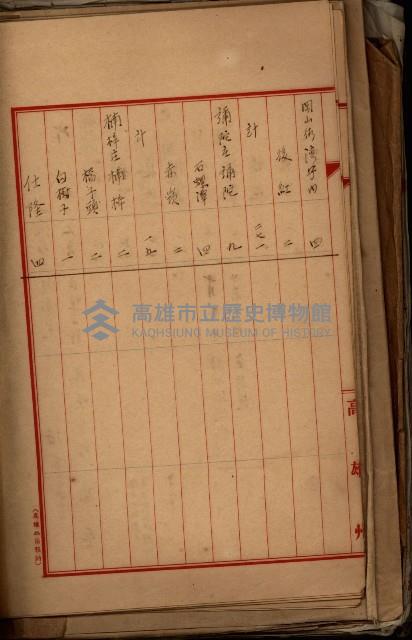 岡山街 湾子内 四
後紅 二
計 二六一
彌陀庄 彌陀 九
石螺潭 四
赤嵌 二
計 一九
楠梓庄 楠梓 二
橋子頭 二
白樹子 一
仕隆 四
高雄州
高雄市立歷史博物館
KAOHSIUNG MUSEUM OF HISTORY